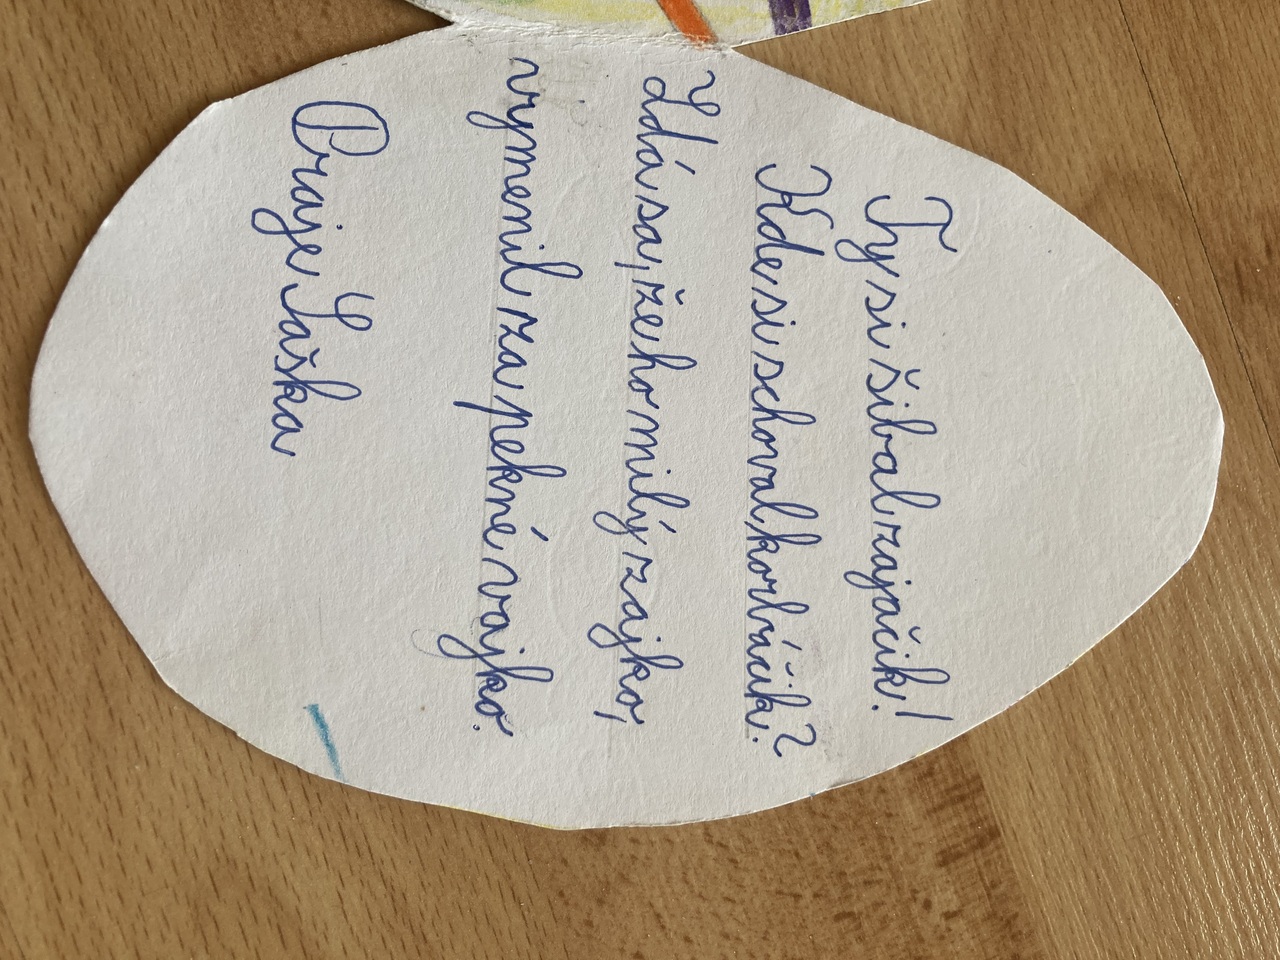 Ty si šibal zajačik!
Kde si schoval korbáčik?
Zdá sa, že ho milý zajko,
vymenil za pekné vajko.
Praje Saška